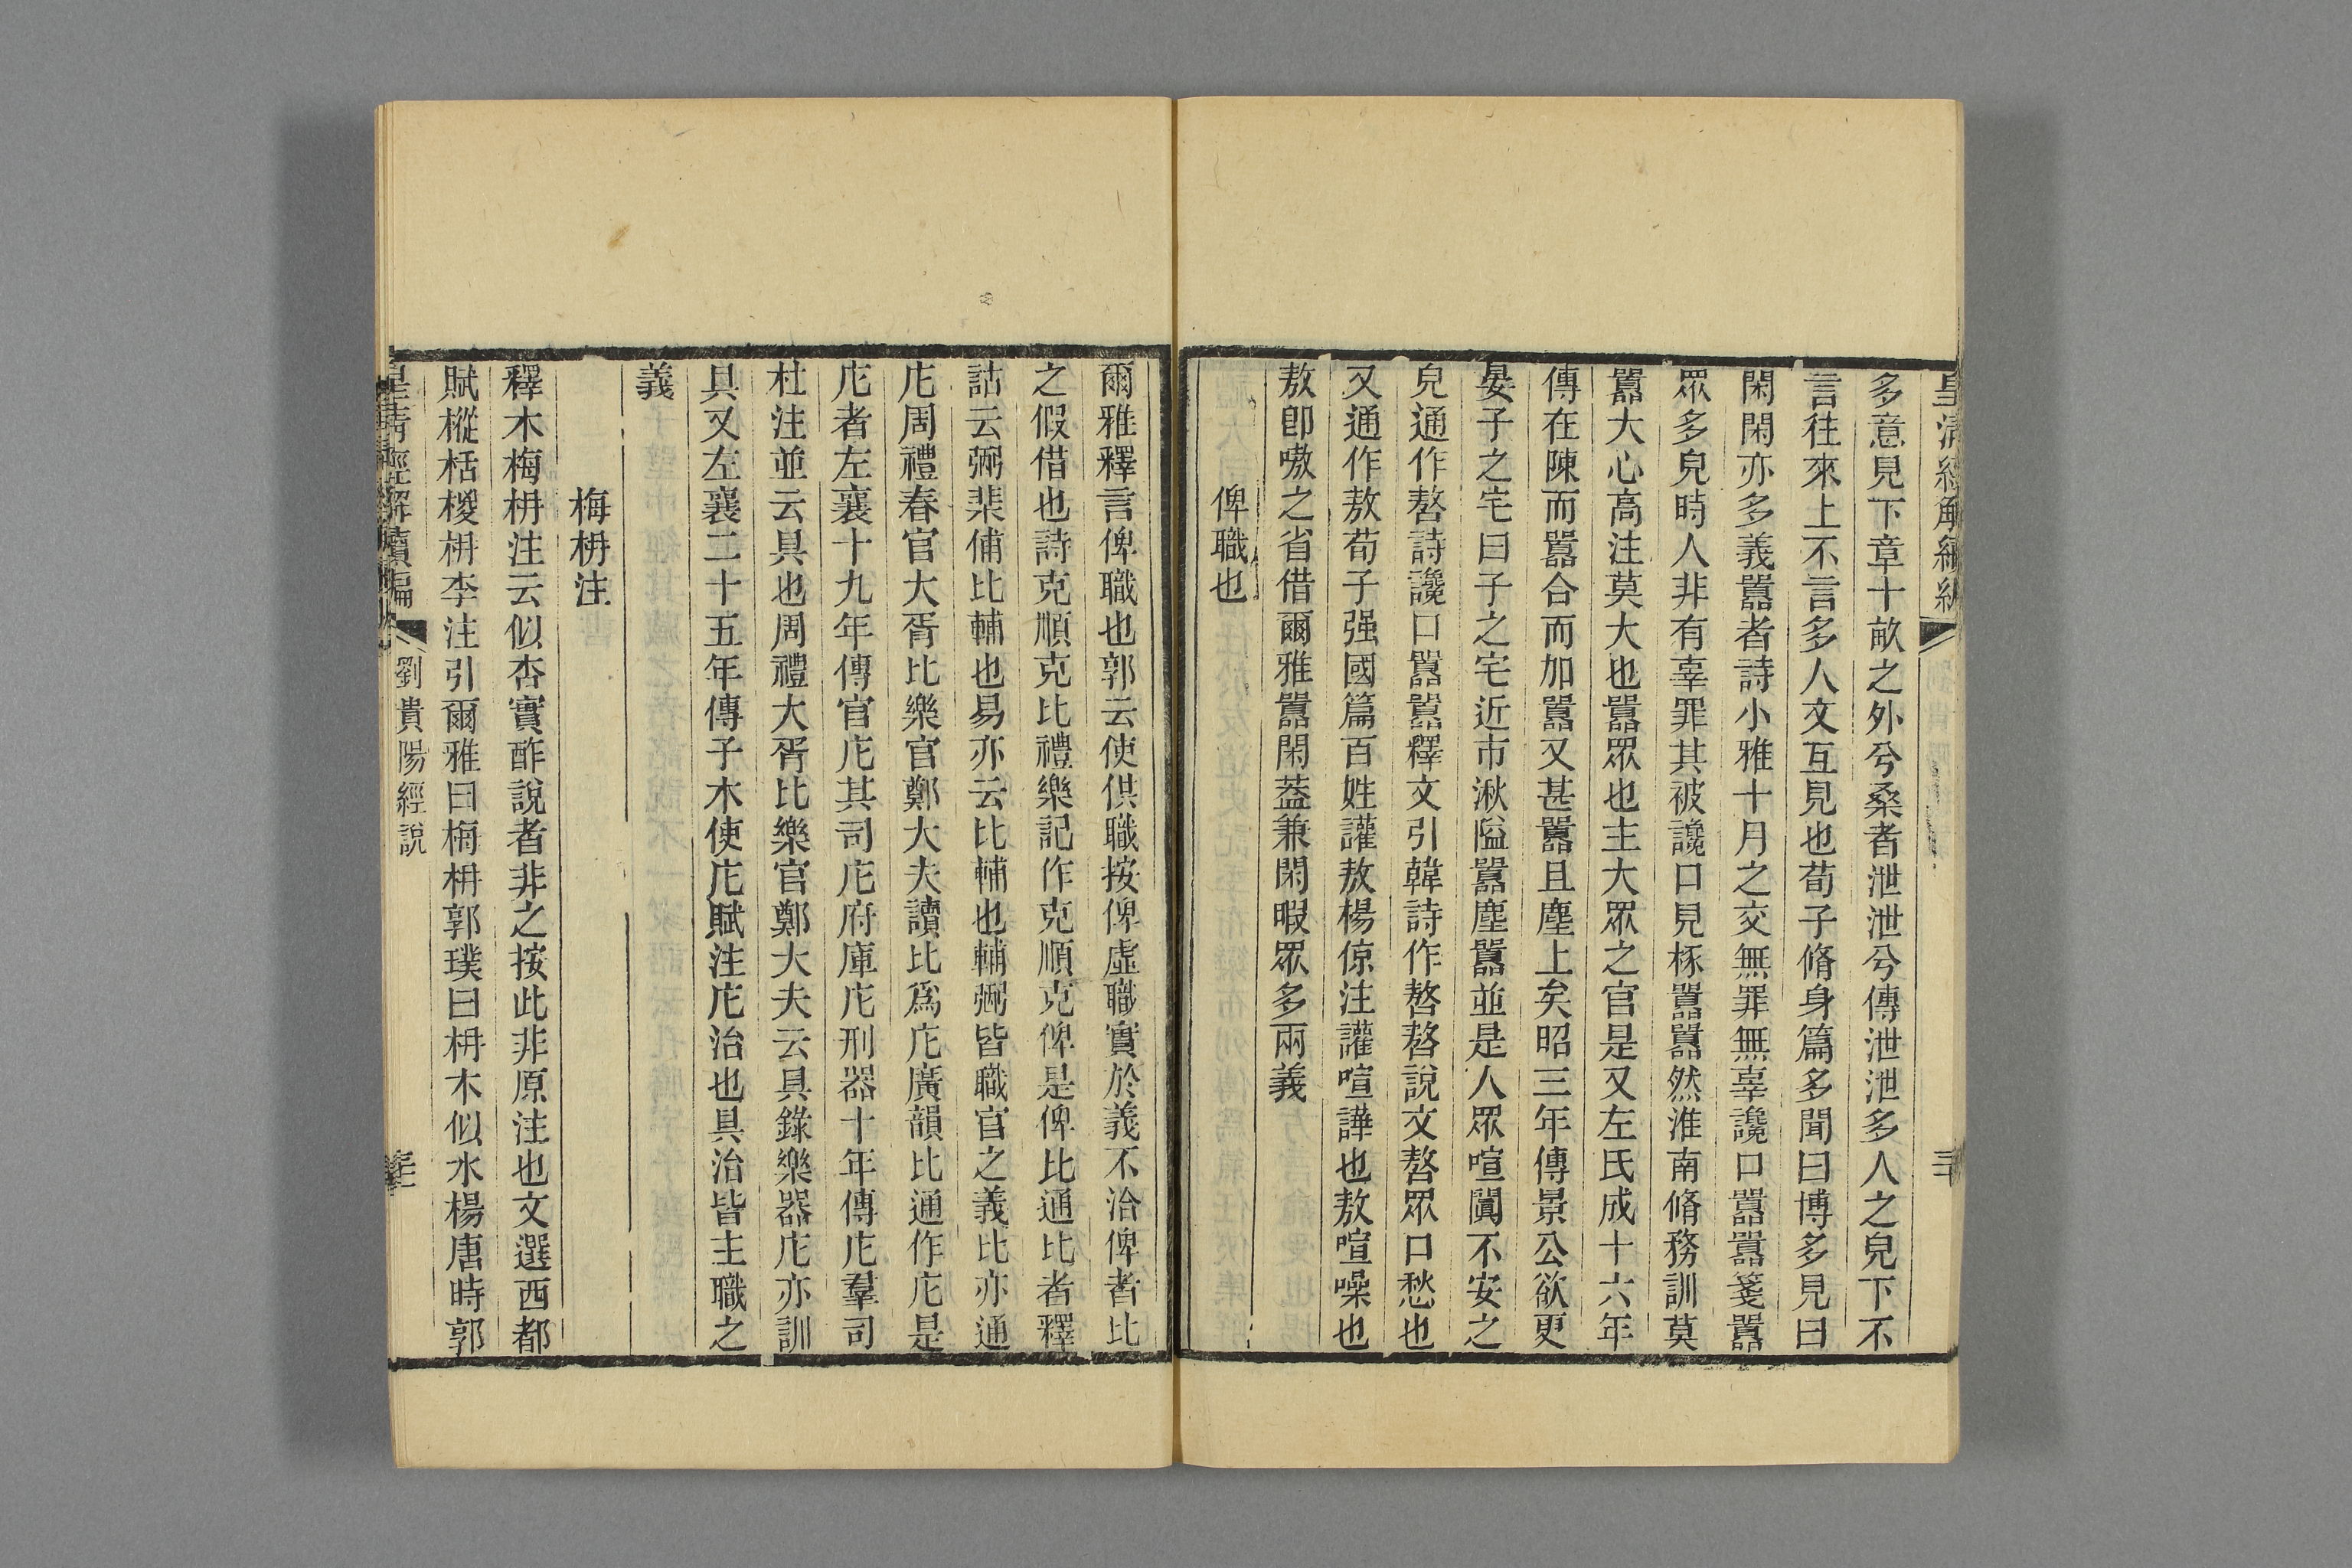 皇清經解續編
三十
多意見下章十畝之外兮桑者泄泄兮傳泄泄多人之皃下不
言往來上不言多人文互見也荀子脩身篇多聞曰博多見曰
閑閑亦多義囂者詩小雅十月之交無罪無辜讒口囂囂箋囂
眾多皃時人非有辜罪其被讒口見椓囂囂然淮南脩務訓莫
囂大心高注莫大也囂眾也主大眾之官是又左氏成十六年
傳在陳而囂合而加囂又甚囂且塵上矣昭三年傳景公欲更
晏子之宅曰子之宅近市湫隘囂塵囂並是人眾喧闐不安之
皃通作嗸詩讒口囂囂釋文引韓詩作嗸嗸說文嗸眾口愁也
又通作敖荀子强國篇百姓讙敖楊倞注讙喧譁也敖喧噪也
敖卽嗷之省借爾雅囂閑葢兼閑暇眾多兩義
俾職也
爾雅釋言俾職也郭云使供職按俾虛職實於義不洽俾者比
之假借也詩克順克比禮樂記作克順克俾是俾比通比者釋
詁云弼棐俌比輔也易亦云比輔也輔弼皆職官之義比亦通
庀周禮春官大胥比樂官鄭大夫讀比爲庀廣韻比通作庀是
庀者左襄十九年傳官庀其司庀府庫庀刑器十年傳庀羣司
杜注並云具也周禮大胥比樂官鄭大夫云具錄樂器庀亦訓
具又左襄二十五年傳子木使庀賦注庀治也具治皆主職之
義
梅枏注
釋木梅枏注云似杏實酢說者非之按此非原注也文選西都
賦樅栝椶枏李注引爾雅曰梅枏郭璞曰枏木似水楊唐時郭
皇清經解續編 劉貴陽經說